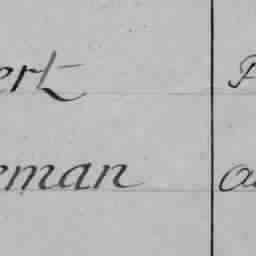 ert P
eman a